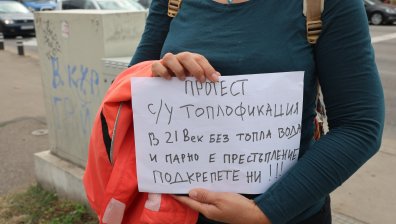 ПРОТЕСТ
с/у ТОПЛОФИКАЦИЯ
В 21 Век БЕЗ ТОПЛА ВОДА
И ПАРНО Е ПРЕСТЪПЛЕНИЕ
ПОДКРЕПЕТЕ НИ !!!